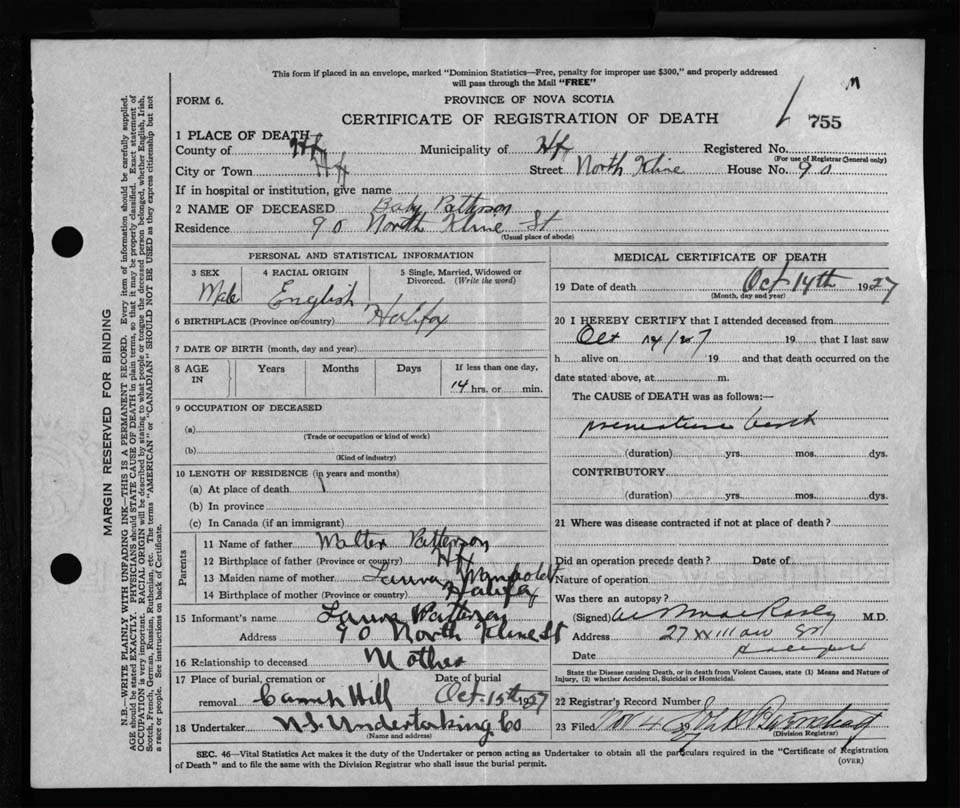 This form if placed in an envelope, marked "Dominion Statistics—Free, penalty for improper use $300," and properly addressed
will pass through the Mail "FREE"
FORM 6.
PROVINCE OF NOVA SCOTIA
CERTIFICATE OF REGISTRATION OF DEATH
755
1 PLACE OF DEATH
County of Hfx Municipality of Hfx Registered No.
(For use of Registrar General only)
City or Town Hfx Street North Kline House No. 90
If in hospital or institution, give name
2 NAME OF DECEASED Baby Patterson
Residence 90 North Kline St
(Usual place of abode)
PERSONAL AND STATISTICAL INFORMATION
3 SEX 4 RACIAL ORIGIN 5 Single, Married, Widowed or
Divorced. (Write the word)
Male English
6 BIRTHPLACE (Province or country) Halifax
7 DATE OF BIRTH (month, day and year)
8 AGE IN Years Months Days If less than one day,
14 hrs. or min.
9 OCCUPATION OF DECEASED
(a)
(Trade or occupation or kind of work)
(b)
(Kind of industry)
10 LENGTH OF RESIDENCE (in years and months)
(a) At place of death
(b) In province
(c) In Canada (if an immigrant)
Parents
11 Name of father Walter Patterson
12 Birthplace of father (Province or country) Hfx
13 Maiden name of mother Laura
14 Birthplace of mother (Province or country) Halifax
15 Informant's name Laura Patterson
Address 90 North Kline St
16 Relationship to deceased Mother
17 Place of burial, cremation or Date of burial
removal Camp Hill Oct 15th 1927
18 Undertaker N.S. Undertaking Co
(Name and address)
MEDICAL CERTIFICATE OF DEATH
19 Date of death Oct 14th 1927
(Month, day and year)
20 I HEREBY CERTIFY that I attended deceased from
Oct 14/27 19 that I last saw
h alive on 19 and that death occurred on the
date stated above, at m.
The CAUSE OF DEATH was as follows:—
premature birth
(duration) yrs. mos. dys.
CONTRIBUTORY
(duration) yrs. mos. dys.
21 Where was disease contracted if not at place of death?
Did an operation precede death? Date of
Nature of operation
Was there an autopsy?
(Signed) M.D.
Address 27
Date
State the Disease causing Death, or in death from Violent Causes, state (1) Means and Nature of
Injury, (2) whether Accidental, Suicidal or Homicidal.
22 Registrar's Record Number
23 Filed Nov 4 1927
(Division Registrar)
SEC. 46—Vital Statistics Act makes it the duty of the Undertaker or person acting as Undertaker to obtain all the particulars required in the "Certificate of Registration
of Death" and to file the same with the Division Registrar who shall issue the burial permit.
(OVER)
MARGIN RESERVED FOR BINDING
N.B.—WRITE PLAINLY WITH UNFADING INK—THIS IS A PERMANENT RECORD. Every item of information should be carefully supplied.
AGE should be stated EXACTLY. PHYSICIANS should STATE CAUSE OF DEATH in plain terms, so that it may be properly classified. Exact statement of
OCCUPATION is very important. RACIAL ORIGIN will be described by stating to what people or tongue the deceased person belonged, whether English, Irish,
Scotch, French, German, Russian, Ruthenian, etc. The terms "AMERICAN" or "CANADIAN" SHOULD NOT BE USED as they express citizenship but not
a race or people. See instructions on back of Certificate.